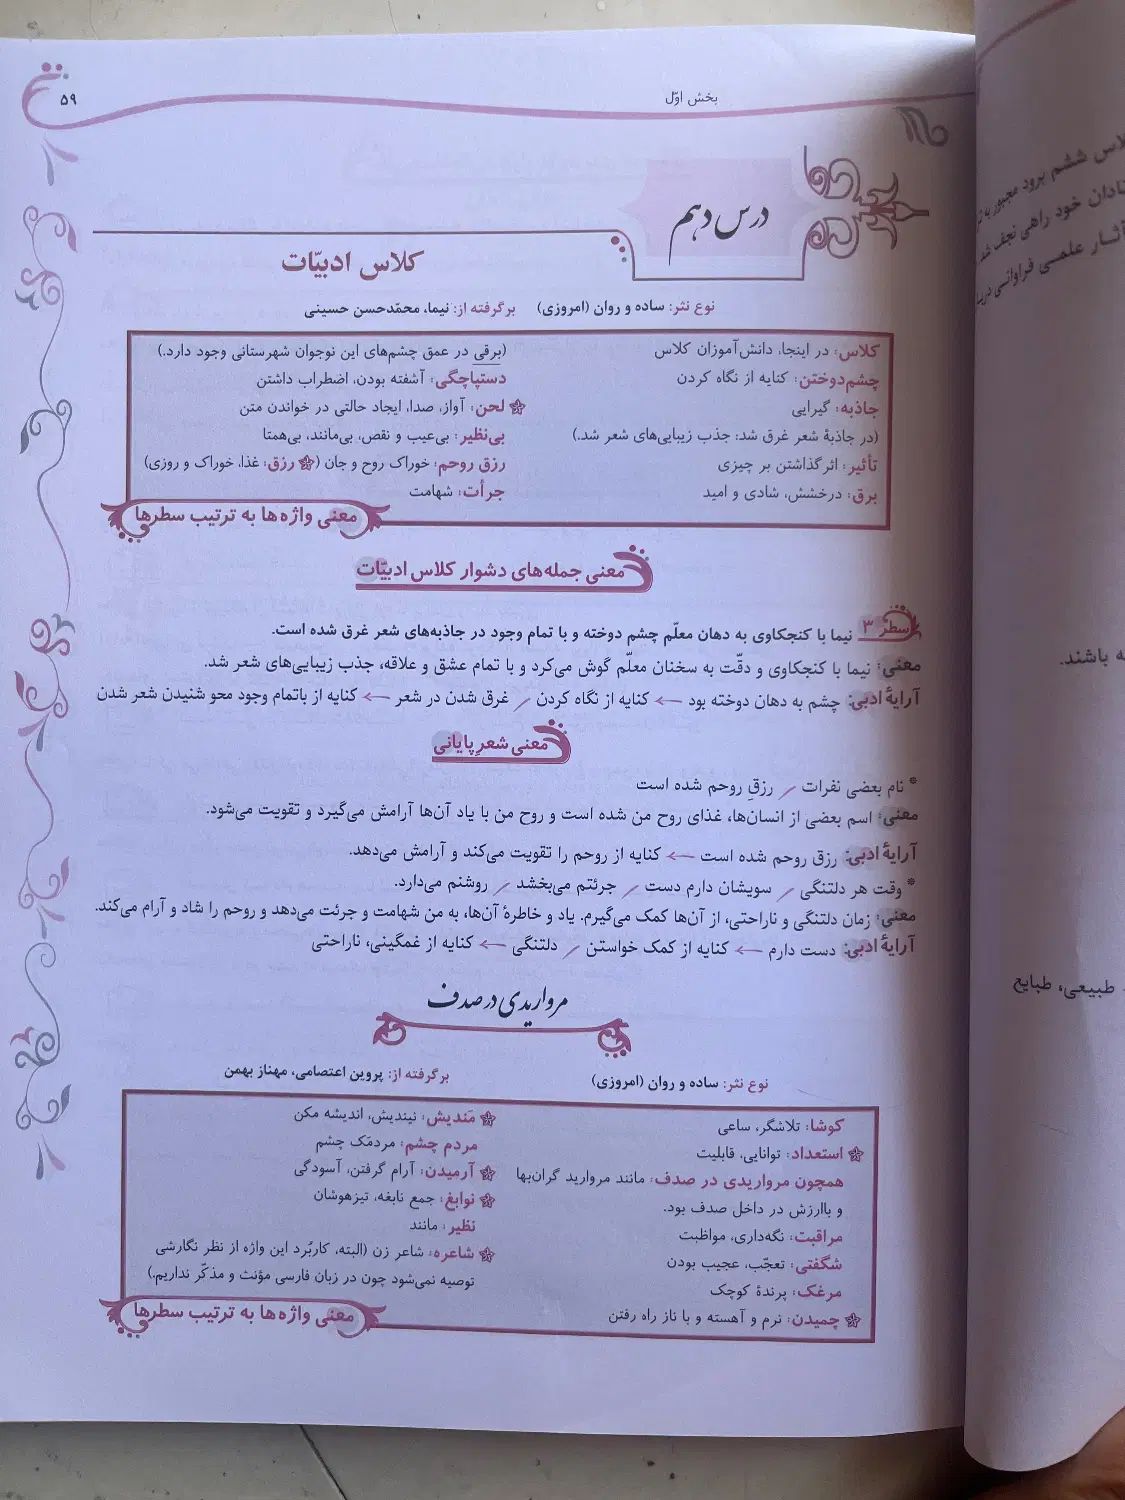 بخش اوّل
۵۹
درس دهم
کلاس ادبیّات
نوع نثر: ساده و روان (امروزی) برگرفته از: نیما، محمّدحسن حسینی
کلاس: در اینجا، دانش‌آموزان کلاس
چشم‌دوختن: کنایه از نگاه کردن
جاذبه: گیرایی
(در جاذبهٔ شعر غرق شد: جذب زیبایی‌های شعر شد.)
تأثیر: اثرگذاشتن بر چیزی
برق: درخشش، شادی و امید
(برقی در عمق چشم‌های این نوجوان شهرستانی وجود دارد.)
دستپاچگی: آشفته بودن، اضطراب داشتن
لحن: آواز، صدا، ایجاد حالتی در خواندن متن
بی‌نظیر: بی‌عیب و نقص، بی‌مانند، بی‌همتا
رزق روحم: خوراک روح و جان (رزق: غذا، خوراک و روزی)
جرأت: شهامت
معنی واژه‌ها به ترتیب سطرها
معنی جمله‌های دشوار کلاس ادبیّات
سطر ۳ نیما با کنجکاوی به دهان معلّم چشم دوخته و با تمام وجود در جاذبه‌های شعر غرق شده است.
معنی: نیما با کنجکاوی و دقّت به سخنان معلّم گوش می‌کرد و با تمام عشق و علاقه، جذب زیبایی‌های شعر شد.
آرایهٔ ادبی: چشم به دهان دوخته بود ← کنایه از نگاه کردن / غرق شدن در شعر ← کنایه از باتمام وجود محو شنیدن شعر شدن
معنی شعر پایانی
* نام بعضی نفرات / رزقِ روحم شده است
معنی: اسم بعضی از انسان‌ها، غذای روح من شده است و روح من با یاد آن‌ها آرامش می‌گیرد و تقویت می‌شود.
آرایهٔ ادبی: رزق روحم شده است ← کنایه از روحم را تقویت می‌کند و آرامش می‌دهد.
* وقت هر دلتنگی / سویشان دارم دست / جرئتم می‌بخشد / روشنم می‌دارد.
معنی: زمان دلتنگی و ناراحتی، از آن‌ها کمک می‌گیرم. یاد و خاطرهٔ آن‌ها، به من شهامت و جرئت می‌دهد و روحم را شاد و آرام می‌کند.
آرایهٔ ادبی: دست دارم ← کنایه از کمک خواستن / دلتنگی ← کنایه از غمگینی، ناراحتی
مرواریدی در صدف
نوع نثر: ساده و روان (امروزی) برگرفته از: پروین اعتصامی، مهناز بهمن
کوشا: تلاشگر، ساعی
استعداد: توانایی، قابلیت
همچون مرواریدی در صدف: مانند مروارید گران‌بها
و باارزش در داخل صدف بود.
مراقبت: نگه‌داری، مواظبت
شگفتی: تعجّب، عجیب بودن
مرغک: پرندهٔ کوچک
چمیدن: نرم و آهسته و با ناز راه رفتن
مَندیش: نیندیش، اندیشه مکن
مردم چشم: مردمَک چشم
آرمیدن: آرام گرفتن، آسودگی
نوابغ: جمع نابغه، تیزهوشان
نظیر: مانند
شاعره: شاعر زن (البته، کاربُرد این واژه از نظر نگارشی
توصیه نمی‌شود چون در زبان فارسی مؤنث و مذکّر نداریم.)
معنی واژه‌ها به ترتیب سطرها
کلاس ششم برود مجبور به
خود راهی نجف شد
آثار علمی فراوانی
ه باشند.
طبیعی، طبایع